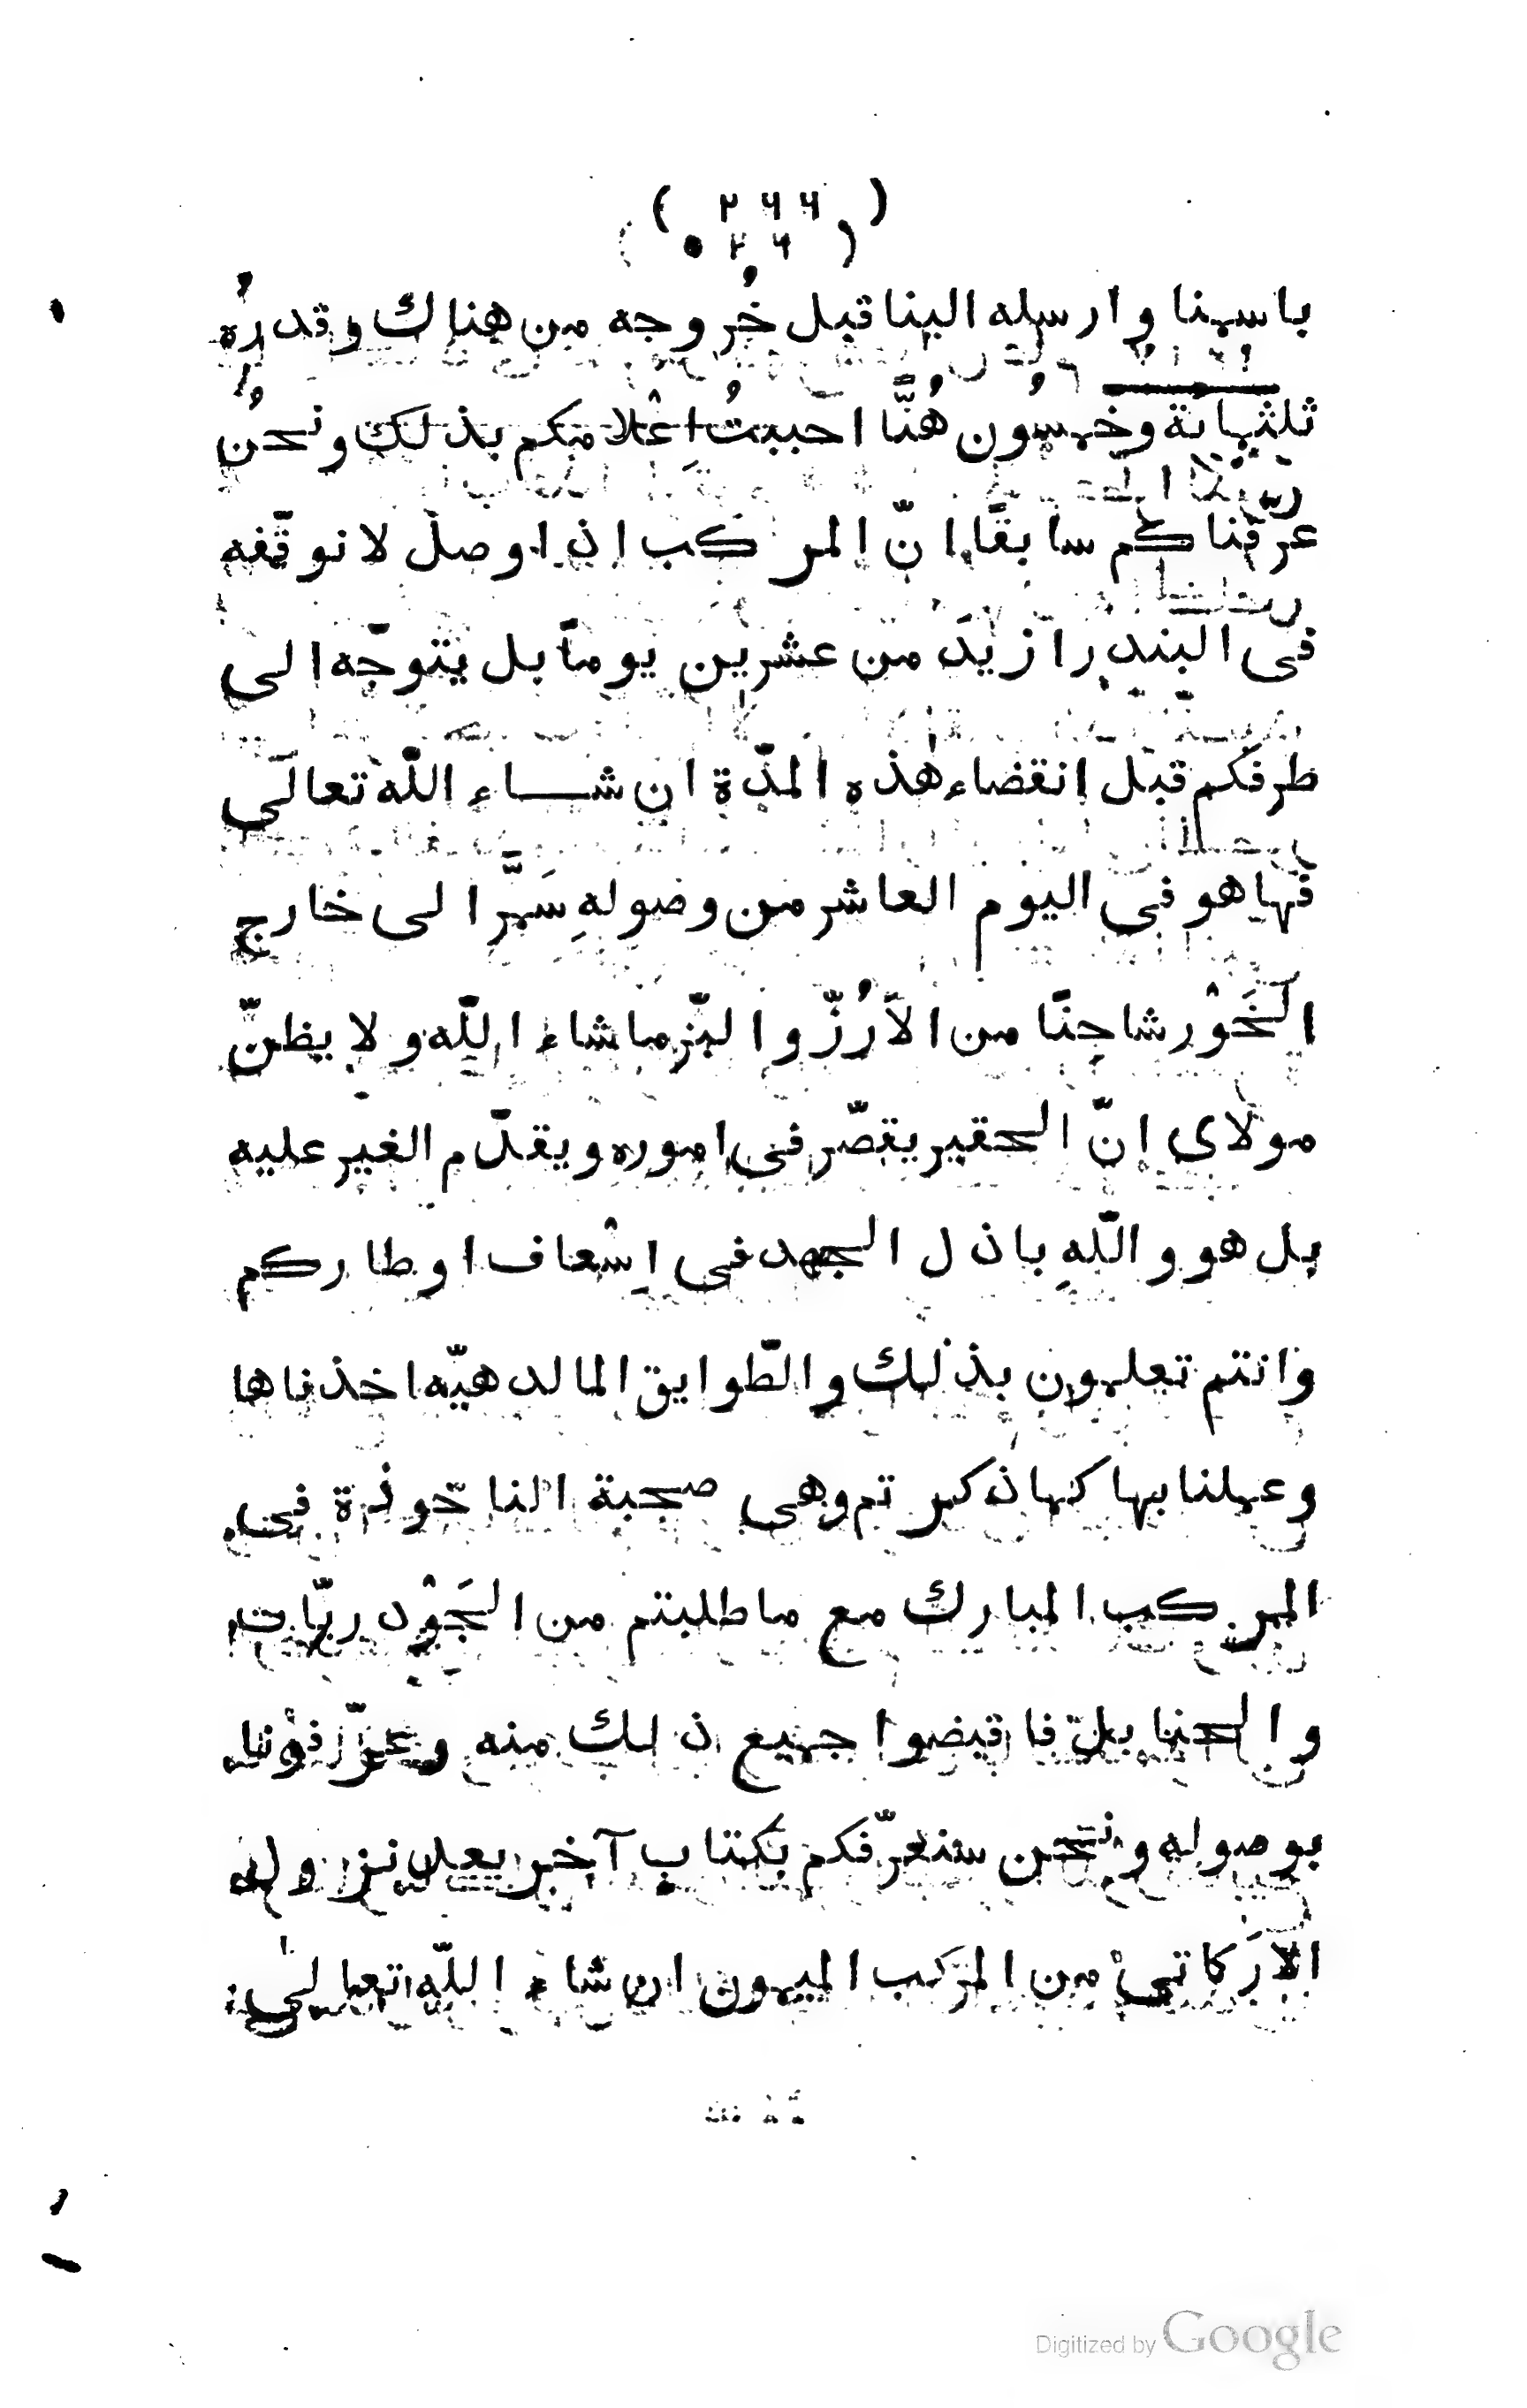 ( ٢٦٦ )
باسمنا وارسله الينا قبل خُروجه من هناك وقدرُه
ثلثمائة وخمسُون هُنَّا احببتُ اعْلامكم بذلك ونحنُ
عرّفناكم سابقًا انّ المركب اذا وصل لا نوقّفه
فى البندر ازيدَ من عشرين يومًا بل يتوجّه الى
طرفكم قبل انقضاء هذه المدّة ان شاء اللّه تعالى
فها هو فى اليوم العاشر من وصولهِ سَمَّر الى خارج
الخَوْر شاحنًا من الاَرُزّ والبّز ما شاء اللّه ولا يظنّ
مولاى إنّ الحقير يقصّر فى اموره ويقدّم الغير عليه
بل هو واللّهِ باذل الجهد فى اِسْعاف اوطاركم
وانتم تعلمون بذلك والطّوايق المالدهيّه اخذناها
وعملنا بها كما ذكرتم وهى صحبة الناخوذة فى
المركب المبارك مع ما طلبتم من الجَوْدريّات
والحنابل فاقبضوا جميع ذلك منه وعرّفونا
بوصوله ونحن سنعرّفكم بكتاب آخر بعد نزول
الاَركاتىْ من المركب الميمون ان شاء اللّه تعالى
Digitized by Google